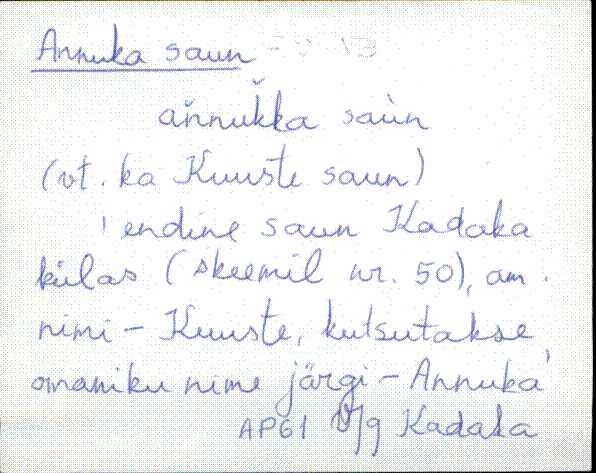 Annuka saun
an̆nuk̆ka saùn
(vt. ka Kuuste saun)
endine saun Kadaka
külas (skeemil nr. 50), am.
nimi - Kuuste, kutsutakse
omaniku nime järgi - Annuka
AP61 Vg Kadaka